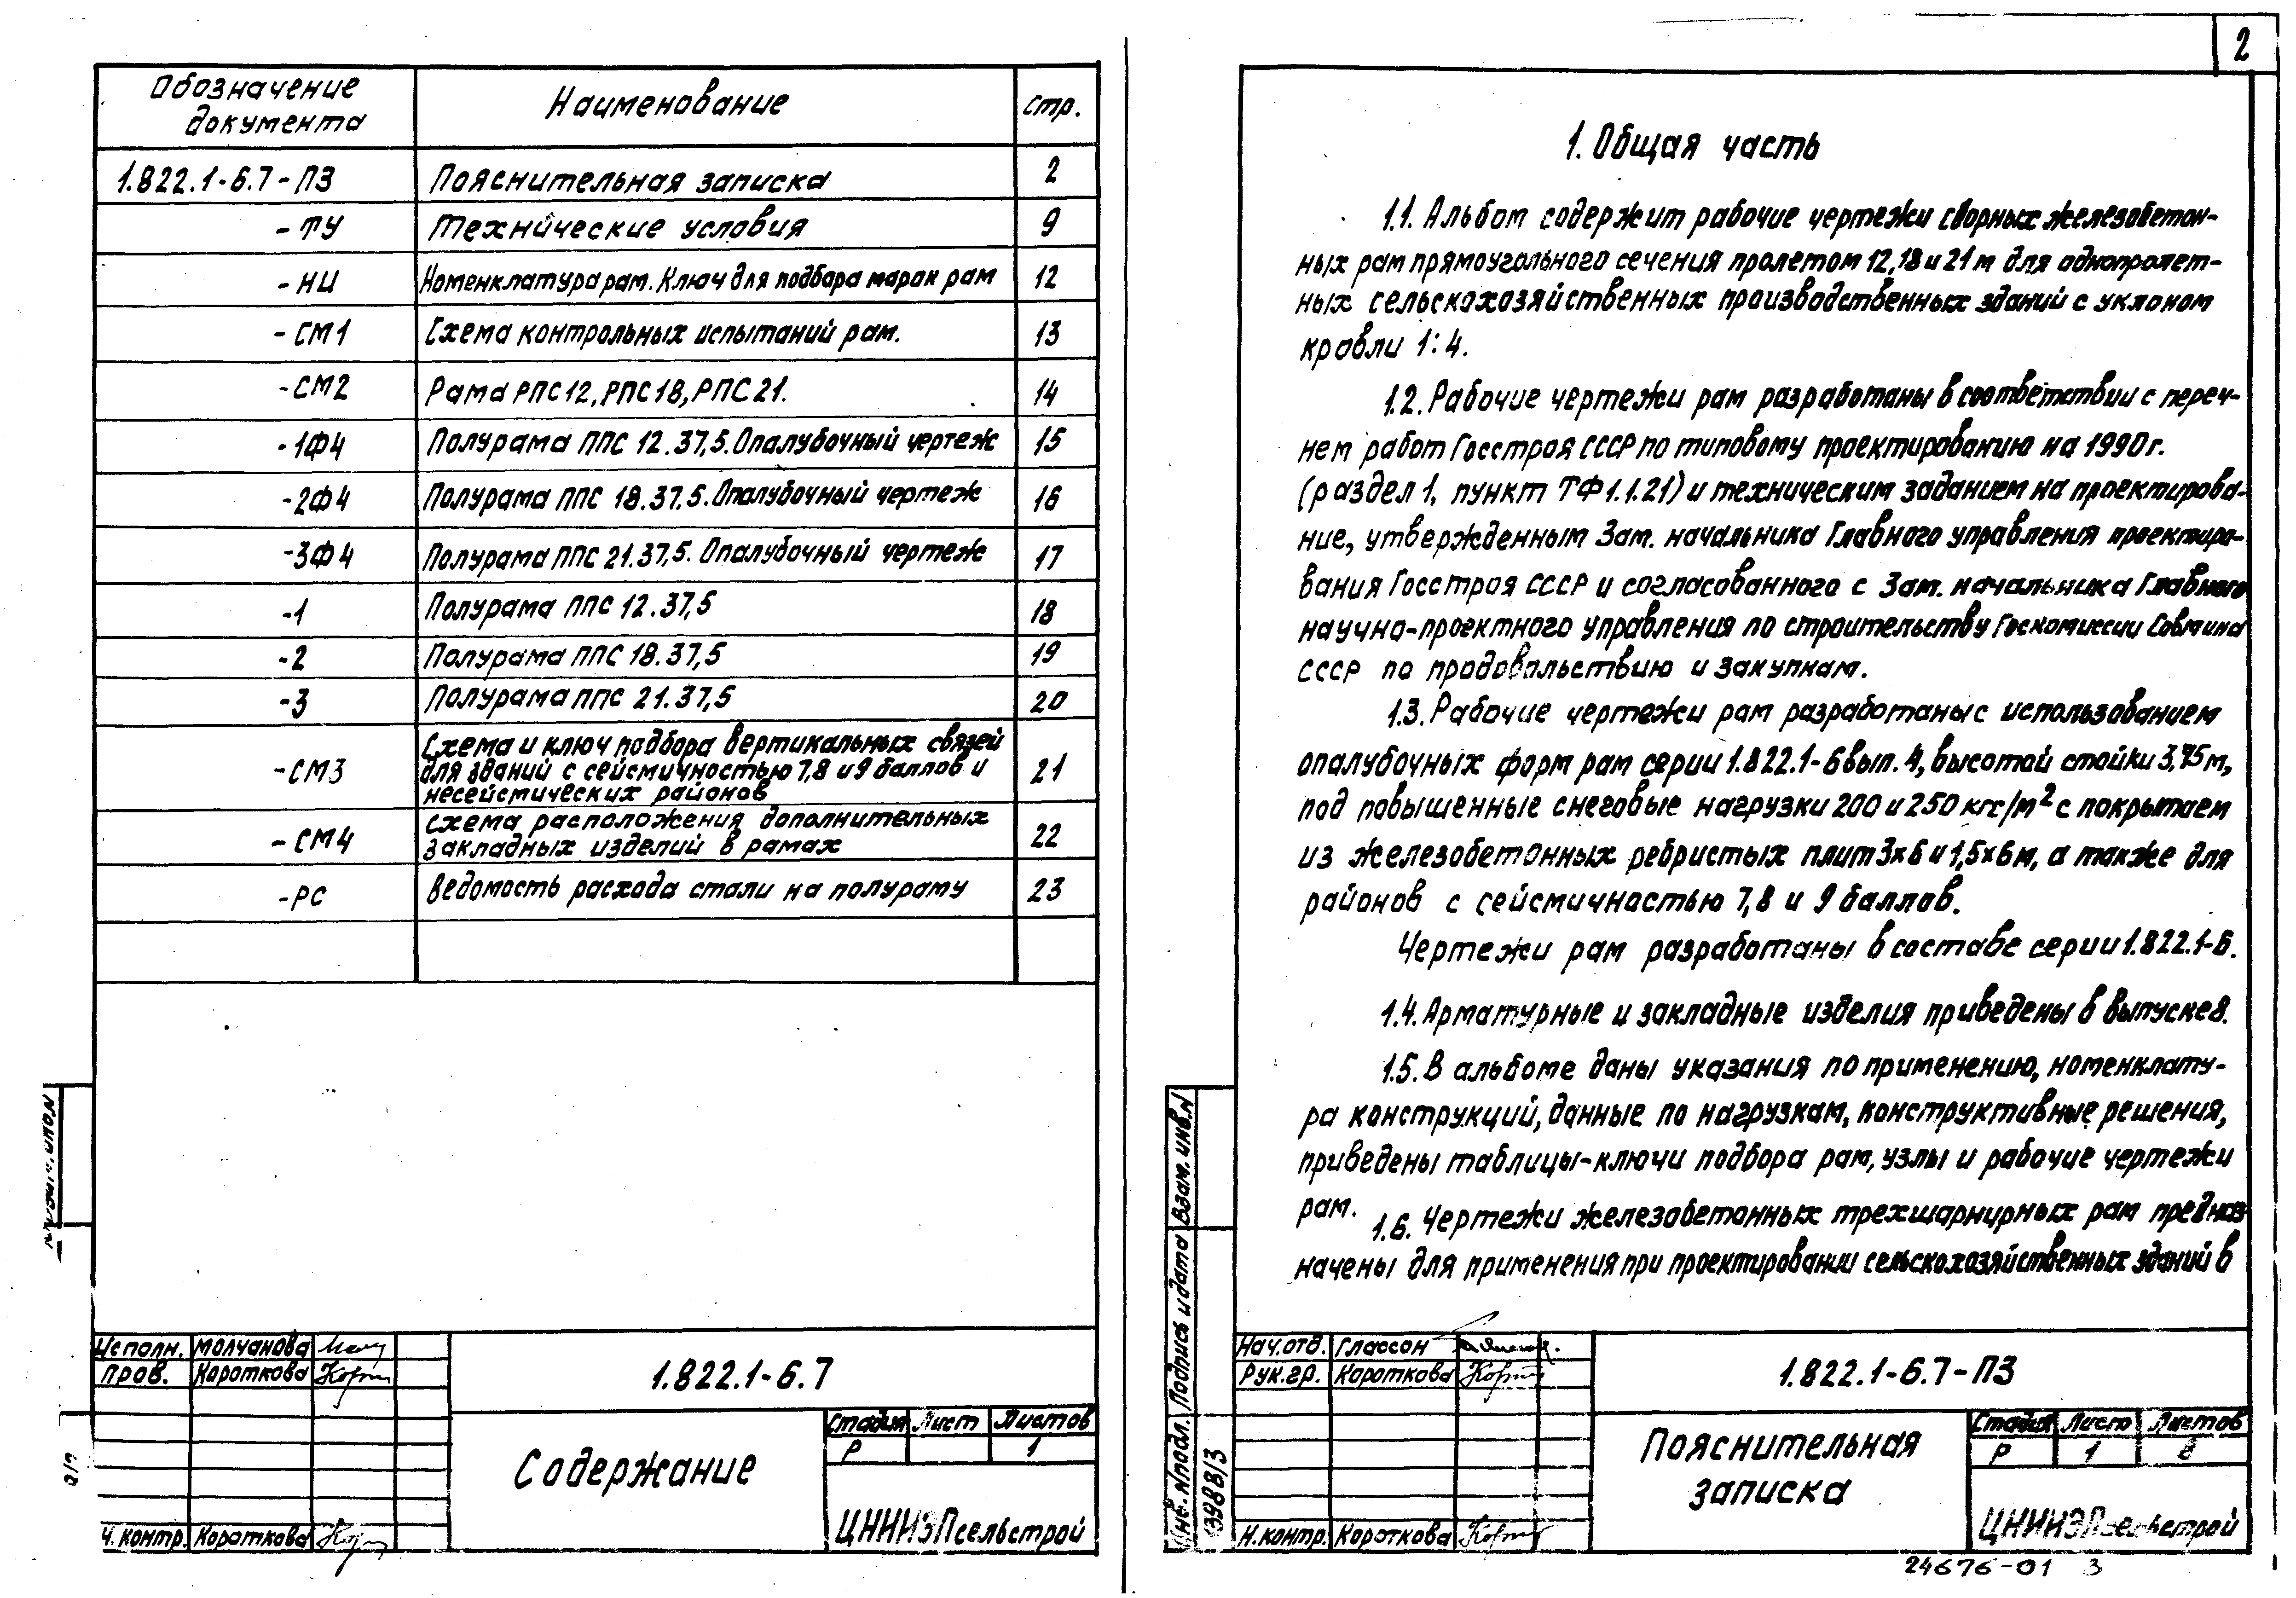 Обозначение документа | Наименование | стр.
1.822.1-6.7-ПЗ | Пояснительная записка | 2
-ТУ | Технические условия | 9
-НИ | Номенклатура рам. Ключ для подбора марок рам | 12
-СМ1 | Схема контрольных испытаний рам. | 13
-СМ2 | Рама РПС12, РПС18, РПС21. | 14
-1ФЧ | Полурама ППС 12.37,5. Опалубочный чертеж | 15
-2ФЧ | Полурама ППС 18.37.5. Опалубочный чертеж | 16
-3ФЧ | Полурама ППС 21.37,5. Опалубочный чертеж | 17
-1 | Полурама ППС 12.37,5 | 18
-2 | Полурама ППС 18.37,5 | 19
-3 | Полурама ППС 21.37,5 | 20
-СМ3 | Схема и ключ подбора вертикальных связей
для зданий с сейсмичностью 7,8 и 9 баллов и
несейсмических районов | 21
-СМ4 | Схема расположения дополнительных
закладных изделий в рамах | 22
-РС | Ведомость расхода стали на полураму | 23
Исполн. Молчанова
Пров. Короткова
Н. контр. Короткова
1.822.1-6.7
Содержание
Стадия Лист Листов
Р 1
ЦНИИЭПсельстрой
2
1. Общая часть
1.1. Альбом содержит рабочие чертежи сборных железобетон-
ных рам прямоугольного сечения пролетом 12,18 и 21м для однопролет-
ных сельскохозяйственных производственных зданий с уклоном
кровли 1:4.
1.2. Рабочие чертежи рам разработаны в соответствии с переч-
нем работ Госстроя СССР по типовому проектированию на 1990г.
(раздел 1, пункт ТФ1.1.21) и техническим заданием на проектирова-
ние, утвержденным Зам. начальника Главного управления проектиро-
вания Госстроя СССР и согласованного с Зам. начальника Главного
научно-проектного управления по строительству Госкомиссии Совмина
СССР по продовольствию и закупкам.
1.3. Рабочие чертежи рам разработаны с использованием
опалубочных форм рам серии 1.822.1-6 вып. 4, высотой стойки 3,75м,
под повышенные снеговые нагрузки 200 и 250 кгс/м² с покрытием
из железобетонных ребристых плит 3х6 и 1,5х6м, а также для
районов с сейсмичностью 7,8 и 9 баллов.
Чертежи рам разработаны в составе серии 1.822.1-6.
1.4. Арматурные и закладные изделия приведены в выпуске 8.
1.5. В альбоме даны указания по применению, номенклату-
ра конструкций, данные по нагрузкам, конструктивные решения,
приведены таблицы-ключи подбора рам, узлы и рабочие чертежи
рам.
1.6. Чертежи железобетонных трехшарнирных рам предназ-
начены для применения при проектировании сельскохозяйственных зданий в
Взам. инв. N
Подпись и дата
Инв. N подл.
Нач. отд. Глассон
Рук. гр. Короткова
Н. контр. Короткова
1.822.1-6.7-ПЗ
Пояснительная
записка
Стадия Лист Листов
Р 1 8
ЦНИИЭПсельстрой
24676-01 3